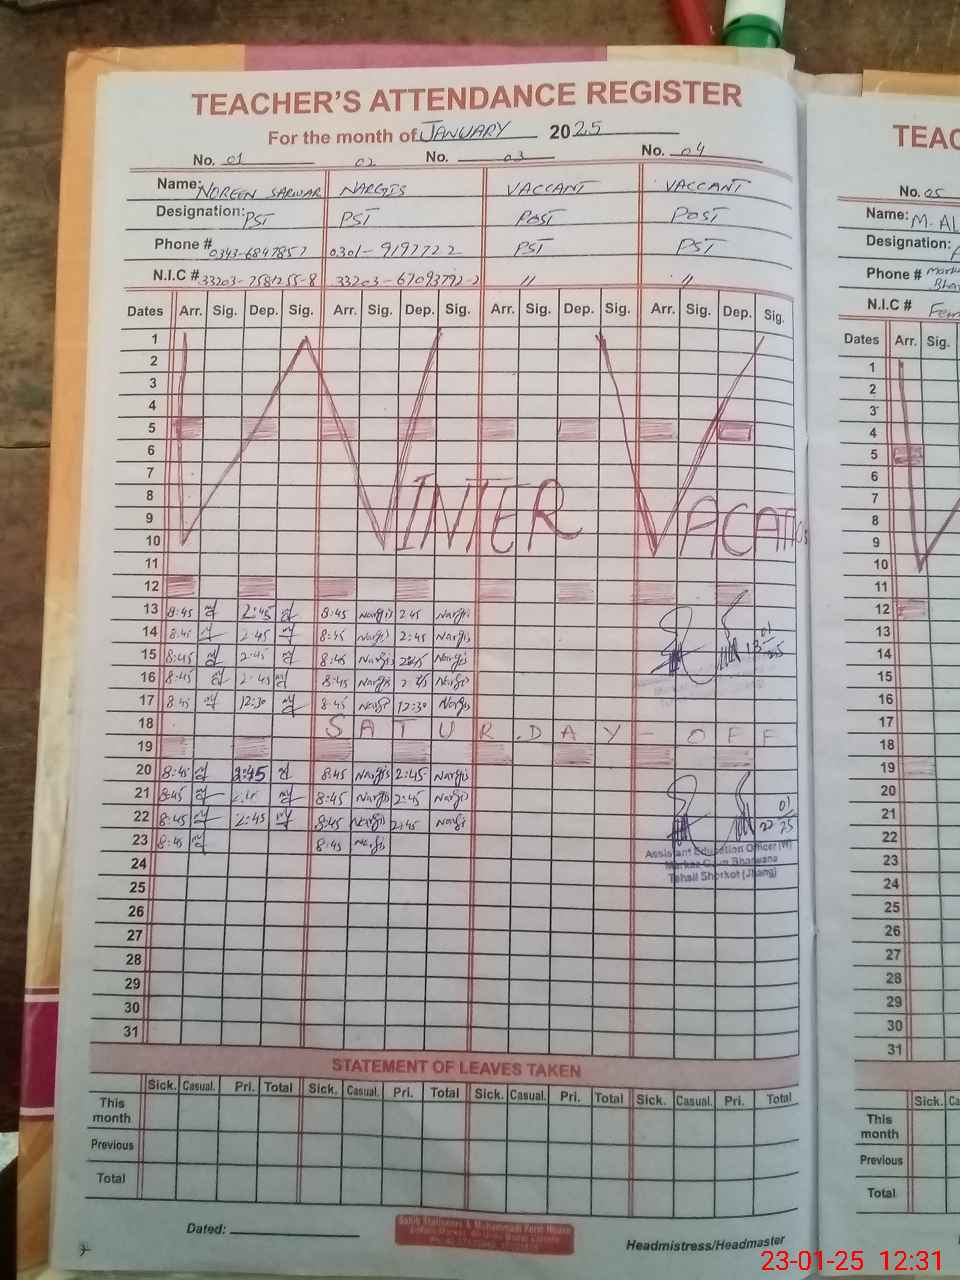 TEACHER'S ATTENDANCE REGISTER
For the month of JANUARY 2025
No. 01 02 No. 03 No. 04
Name: NOREEN SARWAR NARGIS VACCANT VACCANT
Designation: PST PST POST POST
Phone # 0343-6847857 0301-9192722 PST PST
N.I.C # 33203-7581255-8 33203-67093792-2 〃 〃
Dates Arr. Sig. Dep. Sig. Arr. Sig. Dep. Sig. Arr. Sig. Dep. Sig. Arr. Sig. Dep. Sig.
1
2
3
4
5
6
7
8
WINTER VACATIONS
9
10
11
12
13 8:45 2:45 8:45 Nargis 2:45 Nargis
14 8:45 2:45 8:45 Nargis 2:45 Nargis
15 8:45 2:45 8:45 Nargis 2:45 Nargis
13 01 25
16 8:45 2:45 8:45 Nargis 2:45 Nargis
17 8:45 12:30 8:45 Nargis 12:30 Nargis
18 SATURDAY - OFF
19
20 8:45 2:45 8:45 Nargis 2:45 Nargis
21 8:45 2:45 8:45 Nargis 2:45 Nargis
22 8:45 2:45 8:45 Nargis 2:45 Nargis
22 01 25
23 8:45 8:45 Nargis
Assistant Education Officer (W)
Markaz Garh Bharwana
Tehsil Shorkot (Jhang)
24
25
26
27
28
29
30
31
STATEMENT OF LEAVES TAKEN
Sick. Casual. Pri. Total Sick. Casual. Pri. Total Sick. Casual. Pri. Total Sick. Casual. Pri. Total
This month
Previous
Total
Dated:
Headmistress/Headmaster
TEAC
No. 05
Name: M. AL
Designation:
Phone #
N.I.C # Fem
Dates Arr. Sig.
1
2
3
4
5
6
7
8
9
10
11
12
13
14
15
16
17
18
19
20
21
22
23
24
25
26
27
28
29
30
31
Sick. Ca
This month
Previous
Total
23-01-25 12:31